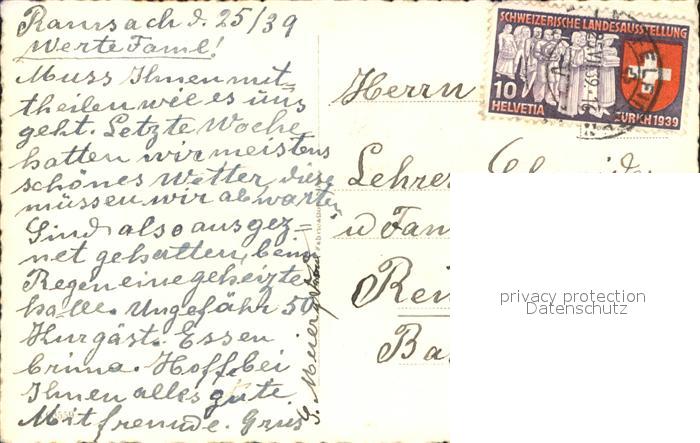 Ramsach d. 25/39
Werte Faml!
Muss Ihnen mit=
theilen wie es uns
geht. Letzte Woche
hatten wir meistens
schönes Wetter diese
müssen wir abwarten
Sind also ausgez=
net gehalten, beim
Regen eine geheizte
halle. Ungefähr 50
Kurgäst. Essen
brima. Hoff bei
Ihnen alles gute
Mit freunde. Grus
G. Meier
Herrn
Lehrer
u Fam
Rei
Ba
SCHWEIZERISCHE LANDESAUSSTELLUNG
10
HELVETIA
ZÜRICH 1939
privacy protection
Datenschutz